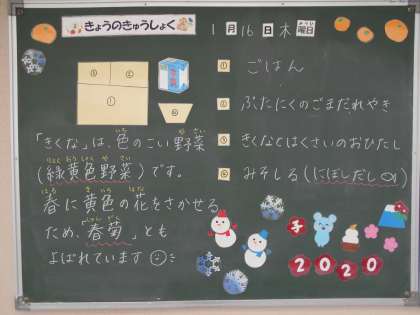 きょうのきゅうしょく
1月16日木曜日
① ごはん
② ぶたにくのごまだれやき
③ きくなとはくさいのおひたし
④ みそしる(にぼしだし)
「きくな」は、色のこい野菜
(緑黄色野菜)です。
春に黄色の花をさかせる
ため、「春菊」とも
よばれています
子
2020